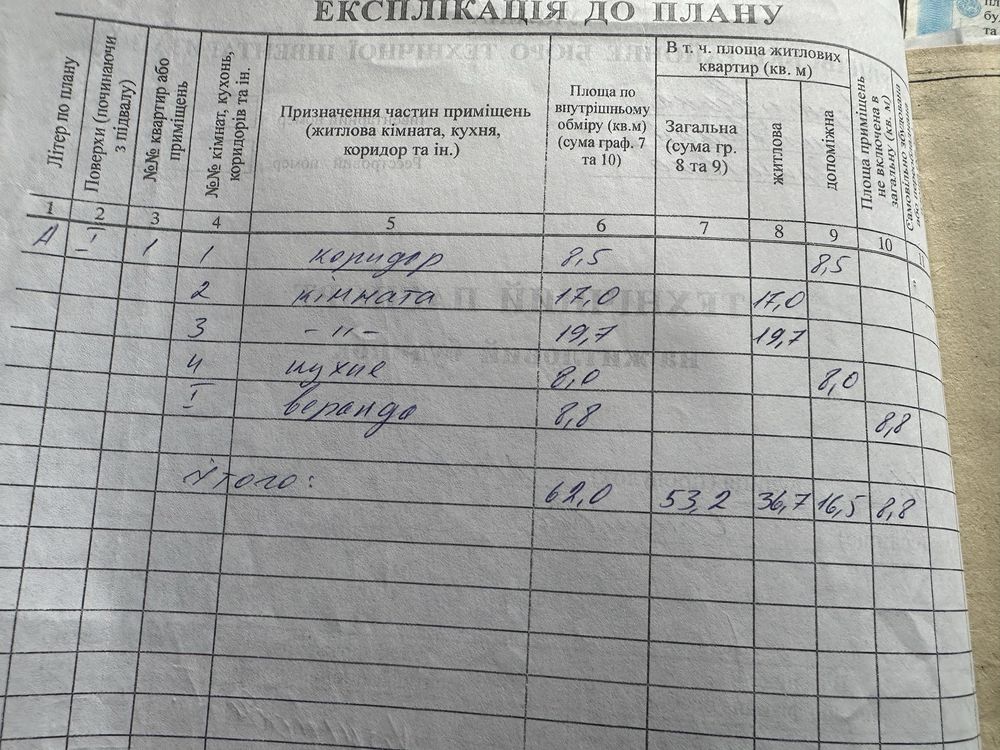 ЕКСПЛІКАЦІЯ ДО ПЛАНУ
Літер по плану
Поверхи (починаючи з підвалу)
№№ квартир або приміщень
№№ кімнат, кухонь, коридорів та ін.
Призначення частин приміщень (житлова кімната, кухня, коридор та ін.)
Площа по внутрішньому обміру (кв.м) (сума граф. 7 та 10)
В т. ч. площа житлових квартир (кв. м)
Загальна (сума гр. 8 та 9)
житлова
допоміжна
Площа приміщень не включена в загальну (кв. м)
Самовільно збудована
1 2 3 4 5 6 7 8 9 10
А І 1 1 коридор 8,5 8,5
2 кімната 17,0 17,0
3 - " - 19,7 19,7
4 кухне 8,0 8,0
І веранда 8,8 8,8
Итого: 62,0 53,2 36,7 16,5 8,8